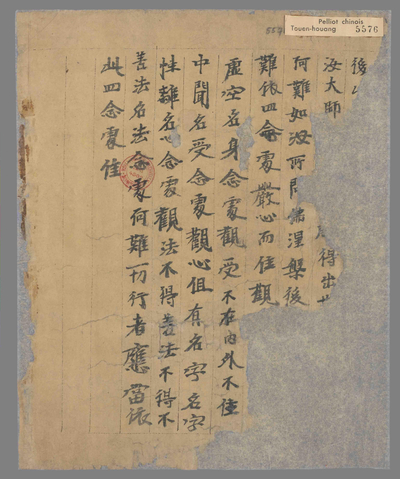 Pelliot chinois
Touen-houang 5576
後
汝大師 得出
阿難如汝所問佛涅槃後
難依四念處嚴心而住觀
虛空名身念處觀受不在內外不住
中間名受念處觀心但有名字名字
性離名心念處觀法不得善法不得不
善法名法念處阿難一切行者應當依
此四念處住